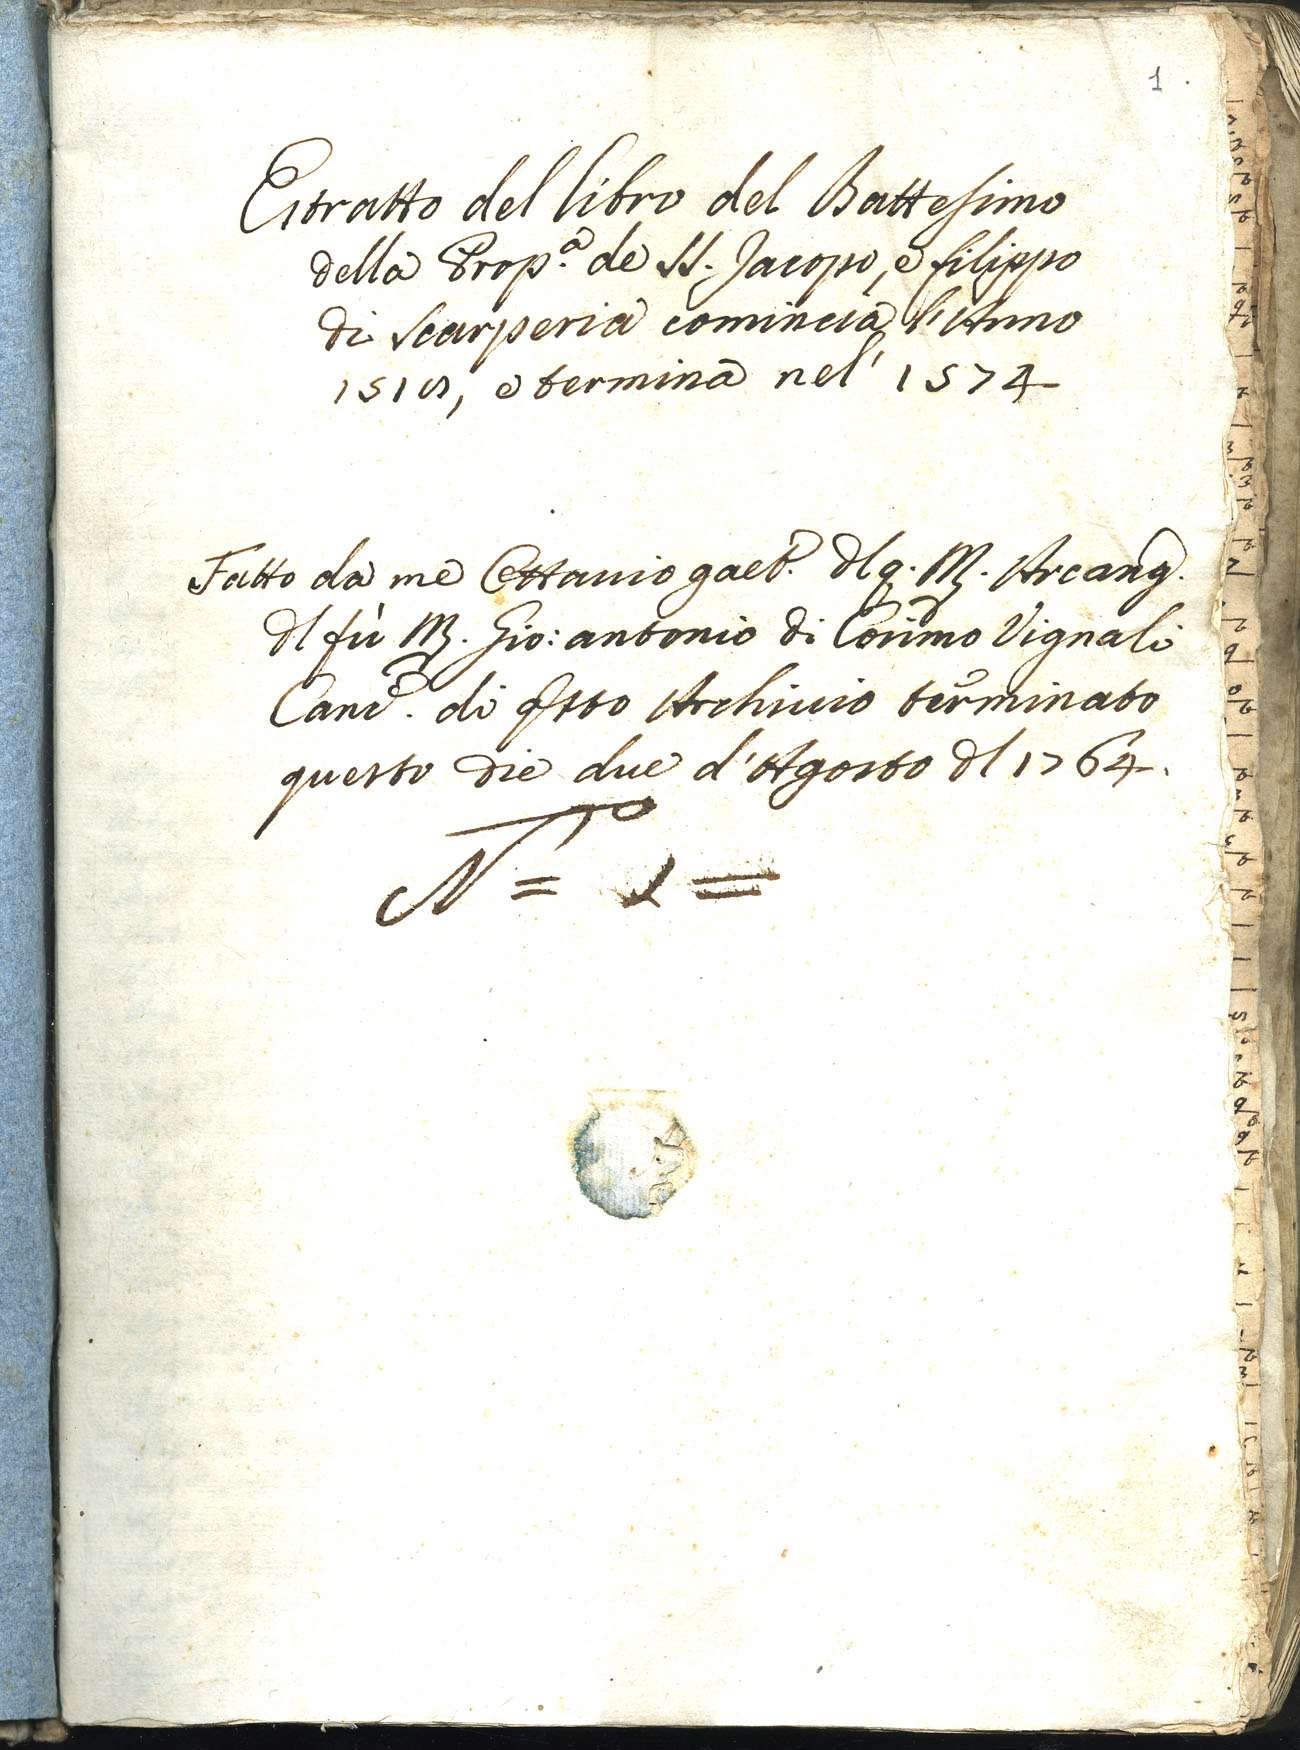 1
Estratto del libro del Battesimo
della Prop.a de SS. Jacopo, e filippo
di Scarperia comincia l'Anno
e termina nel' 1574
Fatto da me Ottavio gaet. dl q. M. Arcang.
dl fù M. Gio: antonio di Cosimo Vignali
Canc. di qsto Archivio terminato
questo die due d'Agosto dl 1764.
N = 1 =